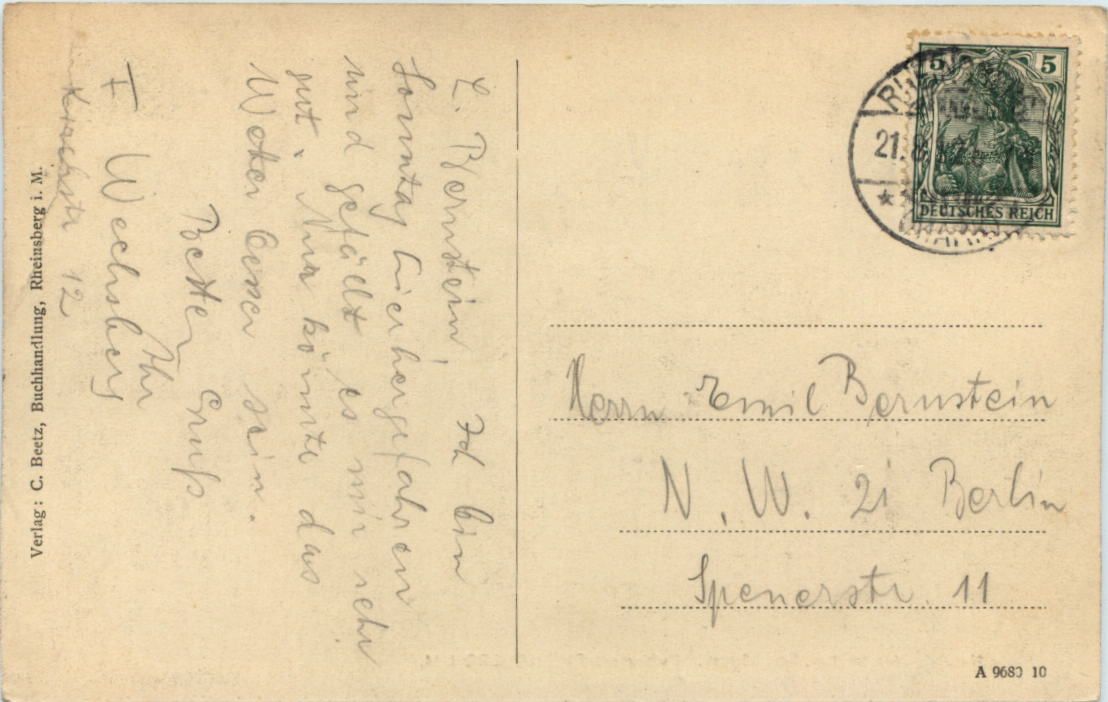 L. Bernstein, Ich bin
Sonntag hierhergefahren
und gefällt es mir sehr
gut. Nur könnte das
Wetter besser sein.
Besten Gruß
Ihr
F Wechsberg
Kirchstr 12
Verlag: C. Beetz, Buchhandlung, Rheinsberg i. M.
5 5
DEUTSCHES REICH
21.8.
Herrn Emil Bernstein
N. W. 21 Berlin
Spenerstr. 11
A 9680 10